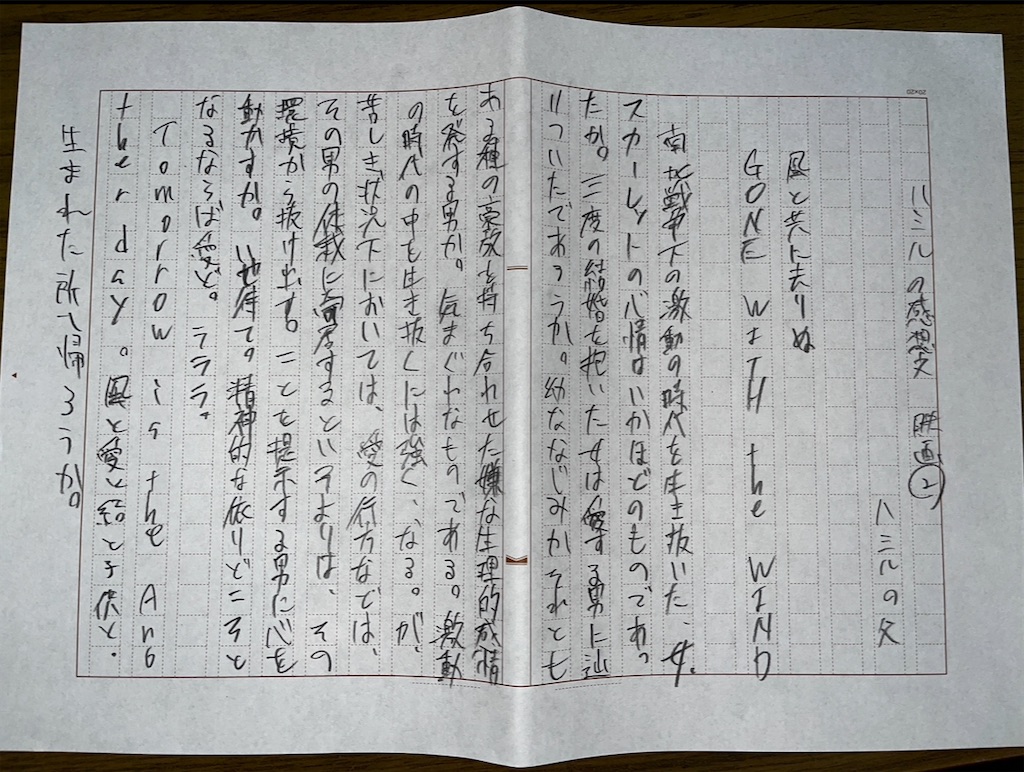 ハミルの感想文 映画②
ハミルの父
風と共に去りぬ
GONE WITH the WIND
南北戦争下の激動の時代を生き抜いた、女、
スカーレットの心情はいかほどのものであっ
たか。三度の結婚を抱いた女は愛する男に辿
りついたであろうか。幼ななじみかそれとも
ある種の豪放を持ち合わせた嫌な生理的感情
を発する男か。気まぐれなものである。激動
の時代の中を生き抜くには強く、なる。が、
苦しき状況下においては、愛の行方などは、
その男の体裁に寄るというよりは、その
環境から抜け出すことを提示する男に心を
動かすか。精神的な依りどころと
なるならば愛と。ラララ。
Tomorrow is the Ano
ther day。風と愛と絵と子供と.
生まれた所へ帰ろうか。